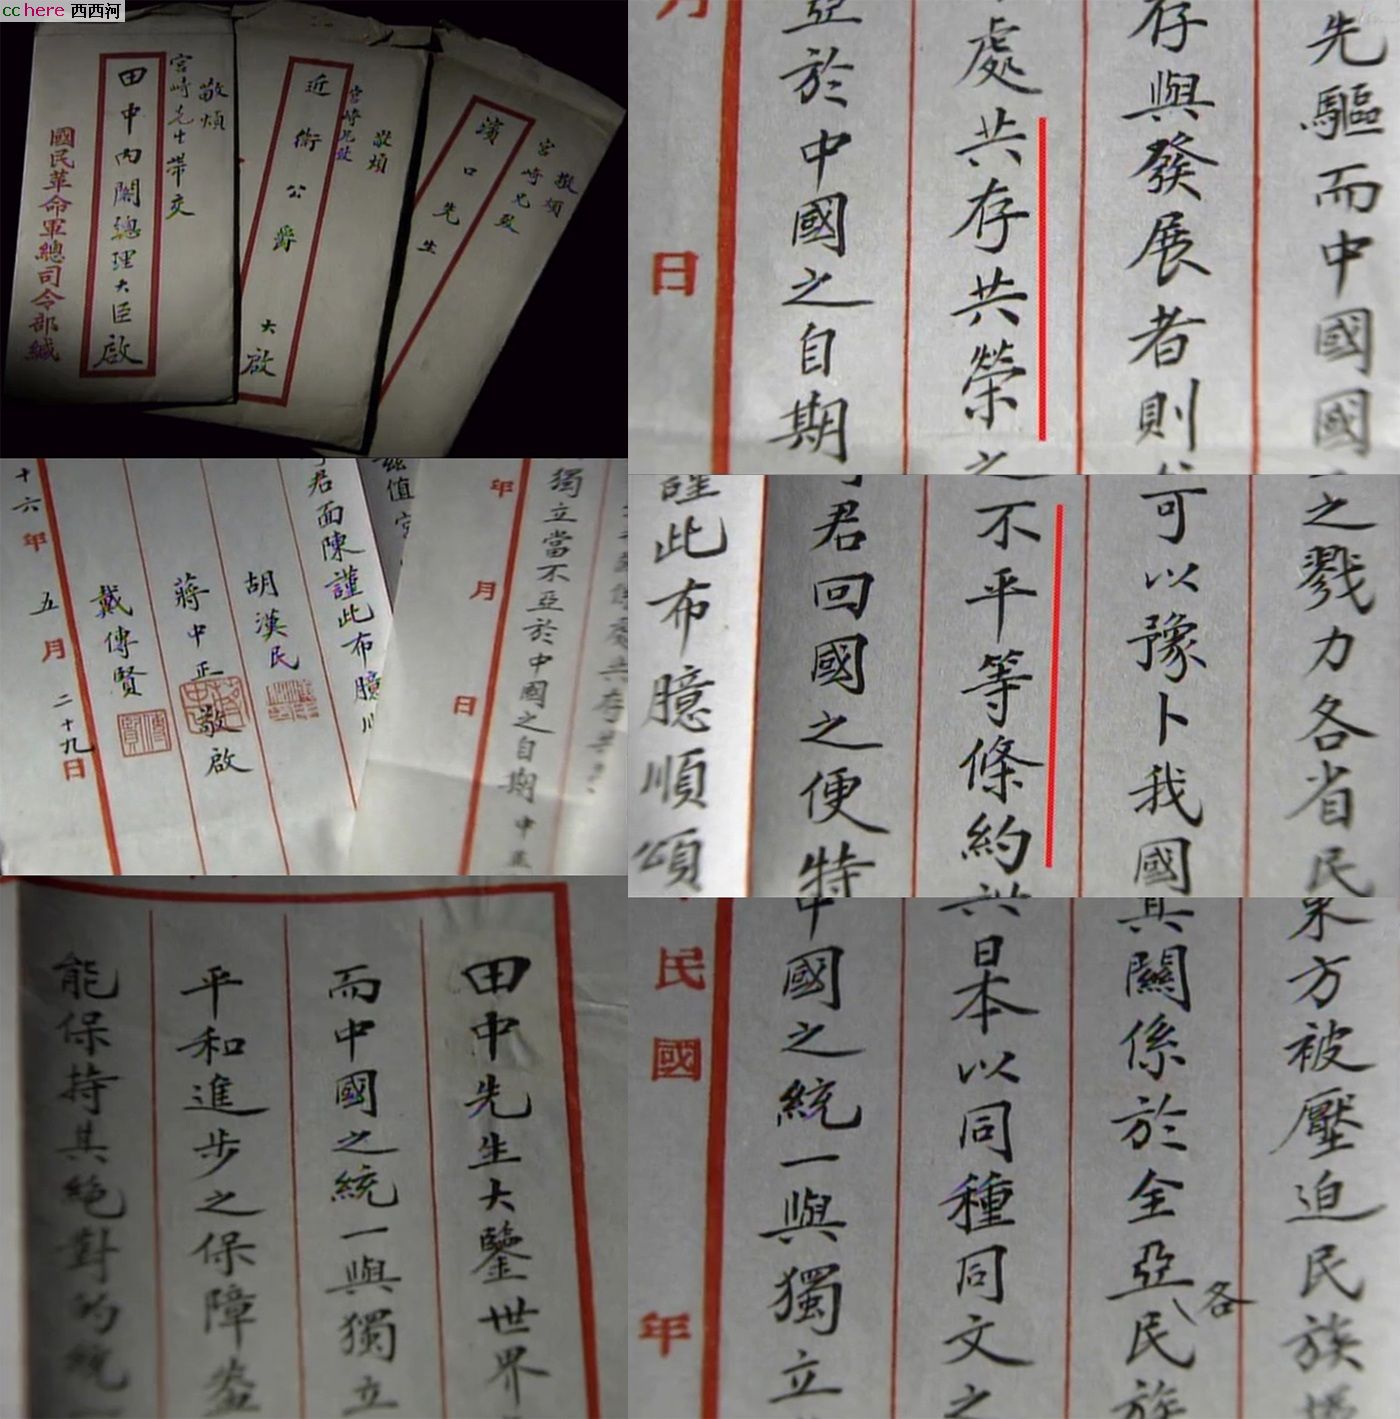 cchere 西西河
敬煩
宮崎先生帶交
田中內閣總理大臣啟
國民革命軍總司令部緘
敬煩
宮崎兄致
近衛公爵 大啟
敬煩
宮崎兄致
濱口先生
先驅而中國國
存與發展者則
處共存共榮之
亞於中國之自期
月 日
君面陳謹此布臆順
胡漢民
蔣中正敬啟
戴傳賢
十六年五月二十九日
獨立當不亞於中國之自期中
年 月 日
之戮力各省民
可以豫卜我國
不平等條約
君回國之便特
謹此布臆順頌
田中先生大鑒世界
而中國之統一與獨立
平和進步之保障
能保持其絕對的統一
東方被壓迫民族
其關係於全亞各民族
共日本以同種同文之
中國之統一與獨立
民國 年